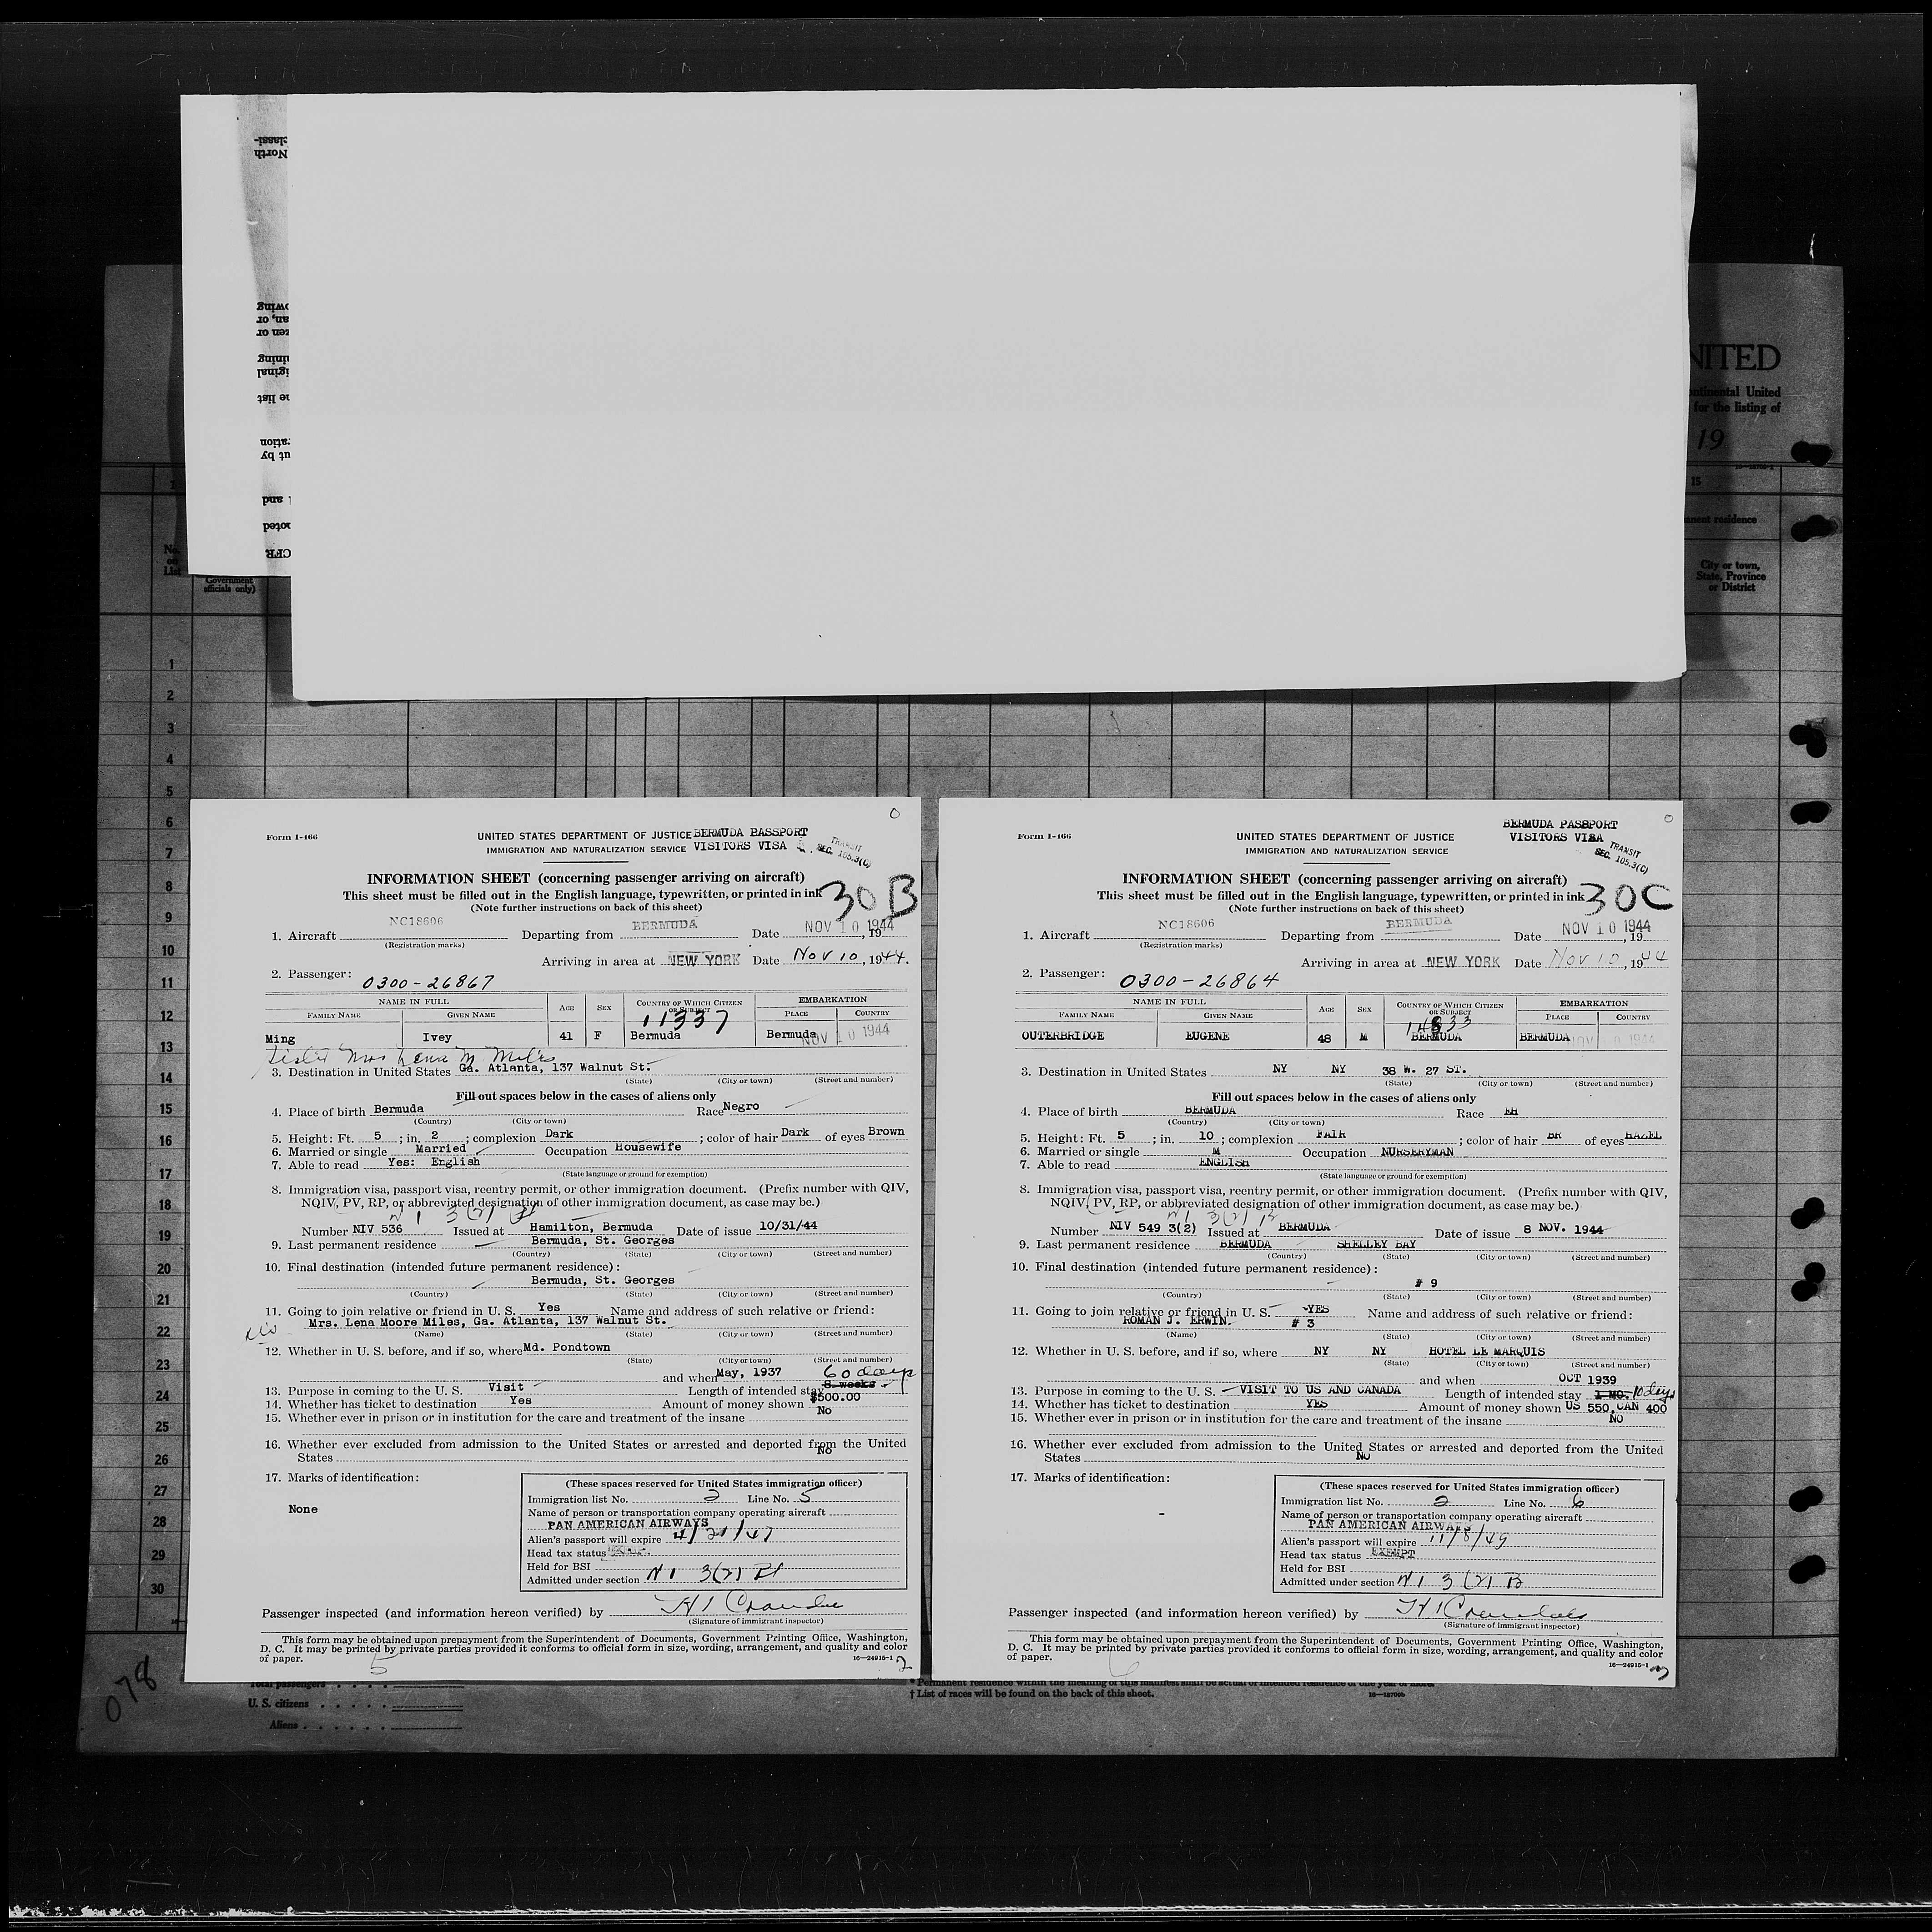 NITED
ntinental United
for the listing of
19
16—18709-1
15
anent residence
City or town,
State, Province
or District
No.
on
List
Government
officials only)
1
2
3
4
5
6
7
8
9
10
11
12
13
14
15
16
17
18
19
20
21
22
23
24
25
26
27
28
29
30
Form I-466
UNITED STATES DEPARTMENT OF JUSTICE BERMUDA PASSPORT
IMMIGRATION AND NATURALIZATION SERVICE VISITORS VISA
TRANSIT
SEC. 105.3(C)
INFORMATION SHEET (concerning passenger arriving on aircraft)
This sheet must be filled out in the English language, typewritten, or printed in ink
30B
(Note further instructions on back of this sheet)
1. Aircraft NC18606 Departing from BERMUDA Date NOV 10 1944, 19
(Registration marks)
Arriving in area at NEW YORK Date Nov 10, 1944.
2. Passenger: 0300-26867
NAME IN FULL AGE SEX COUNTRY OF WHICH CITIZEN OR SUBJECT EMBARKATION
FAMILY NAME GIVEN NAME 11337 PLACE COUNTRY
Ming Ivey 41 F Bermuda Bermuda NOV 10 1944
Sister Mrs Lena M Miles
3. Destination in United States Ga. Atlanta, 137 Walnut St.
(State) (City or town) (Street and number)
Fill out spaces below in the cases of aliens only
4. Place of birth Bermuda Race Negro
(Country) (City or town)
5. Height: Ft. 5; in. 2; complexion Dark; color of hair Dark of eyes Brown
6. Married or single Married Occupation Housewife
7. Able to read Yes: English
(State language or ground for exemption)
8. Immigration visa, passport visa, reentry permit, or other immigration document. (Prefix number with QIV,
NQIV, PV, RP, or abbreviated designation of other immigration document, as case may be.)
Number NIV 536 Issued at Hamilton, Bermuda Date of issue 10/31/44
9. Last permanent residence Bermuda, St. Georges
(Country) (State) (City or town) (Street and number)
10. Final destination (intended future permanent residence):
Bermuda, St. Georges
(Country) (State) (City or town) (Street and number)
11. Going to join relative or friend in U. S. Yes Name and address of such relative or friend:
Mrs. Lena Moore Miles, Ga. Atlanta, 137 Walnut St.
(Name) (State) (City or town) (Street and number)
12. Whether in U. S. before, and if so, where Md. Pondtown
(State) (City or town) (Street and number)
and when May, 1937 60 days
13. Purpose in coming to the U. S. Visit Length of intended stay 8 weeks
14. Whether has ticket to destination Yes Amount of money shown $500.00
15. Whether ever in prison or in institution for the care and treatment of the insane No
16. Whether ever excluded from admission to the United States or arrested and deported from the United
States No
17. Marks of identification:
None
(These spaces reserved for United States immigration officer)
Immigration list No. 2 Line No. 5
Name of person or transportation company operating aircraft
PAN AMERICAN AIRWAYS
Alien's passport will expire
Head tax status
Held for BSI
Admitted under section
Passenger inspected (and information hereon verified) by
(Signature of immigrant inspector)
This form may be obtained upon prepayment from the Superintendent of Documents, Government Printing Office, Washington,
D. C. It may be printed by private parties provided it conforms to official form in size, wording, arrangement, and quality and color
of paper.
5
16—24915-1 2
Form I-466
UNITED STATES DEPARTMENT OF JUSTICE
IMMIGRATION AND NATURALIZATION SERVICE
BERMUDA PASSPORT
VISITORS VISA
TRANSIT
SEC. 105.3(C)
INFORMATION SHEET (concerning passenger arriving on aircraft)
This sheet must be filled out in the English language, typewritten, or printed in ink
30C
(Note further instructions on back of this sheet)
1. Aircraft NC18606 Departing from BERMUDA Date NOV 10 1944, 19
(Registration marks)
Arriving in area at NEW YORK Date Nov 10, 1944
2. Passenger: 0300-26864
NAME IN FULL AGE SEX COUNTRY OF WHICH CITIZEN OR SUBJECT EMBARKATION
FAMILY NAME GIVEN NAME PLACE COUNTRY
OUTERBRIDGE EUGENE 48 M BERMUDA BERMUDA NOV 10 1944
3. Destination in United States NY NY 38 W. 27 ST.
(State) (City or town) (Street and number)
Fill out spaces below in the cases of aliens only
4. Place of birth BERMUDA Race EH
(Country) (City or town)
5. Height: Ft. 5; in. 10; complexion FAIR; color of hair BR of eyes HAZEL
6. Married or single M Occupation NURSERYMAN
7. Able to read ENGLISH
(State language or ground for exemption)
8. Immigration visa, passport visa, reentry permit, or other immigration document. (Prefix number with QIV,
NQIV, PV, RP, or abbreviated designation of other immigration document, as case may be.)
Number NIV 549 3(2) Issued at BERMUDA Date of issue 8 NOV. 1944
9. Last permanent residence BERMUDA SHELLEY BAY
(Country) (State) (City or town) (Street and number)
10. Final destination (intended future permanent residence):
# 9
(Country) (State) (City or town) (Street and number)
11. Going to join relative or friend in U. S. YES Name and address of such relative or friend:
ROMAN J. ERWIN. # 3
(Name) (State) (City or town) (Street and number)
12. Whether in U. S. before, and if so, where NY NY HOTEL LE MARQUIS
(State) (City or town) (Street and number)
and when OCT 1939
13. Purpose in coming to the U. S. VISIT TO US AND CANADA Length of intended stay 1 MO. 10 days
14. Whether has ticket to destination YES Amount of money shown US 550, CAN 400
15. Whether ever in prison or in institution for the care and treatment of the insane NO
16. Whether ever excluded from admission to the United States or arrested and deported from the United
States NO
17. Marks of identification:
-
(These spaces reserved for United States immigration officer)
Immigration list No. 2 Line No. 6
Name of person or transportation company operating aircraft
PAN AMERICAN AIRWAYS
Alien's passport will expire 11/8/49
Head tax status EXEMPT
Held for BSI
Admitted under section
Passenger inspected (and information hereon verified) by
(Signature of immigrant inspector)
This form may be obtained upon prepayment from the Superintendent of Documents, Government Printing Office, Washington,
D. C. It may be printed by private parties provided it conforms to official form in size, wording, arrangement, and quality and color
of paper.
6
16—24915-1 3
078
Total passengers
U. S. citizens
Aliens
* Permanent residence within the meaning of this manifest shall be actual or intended residence of one year or more.
† List of races will be found on the back of this sheet.